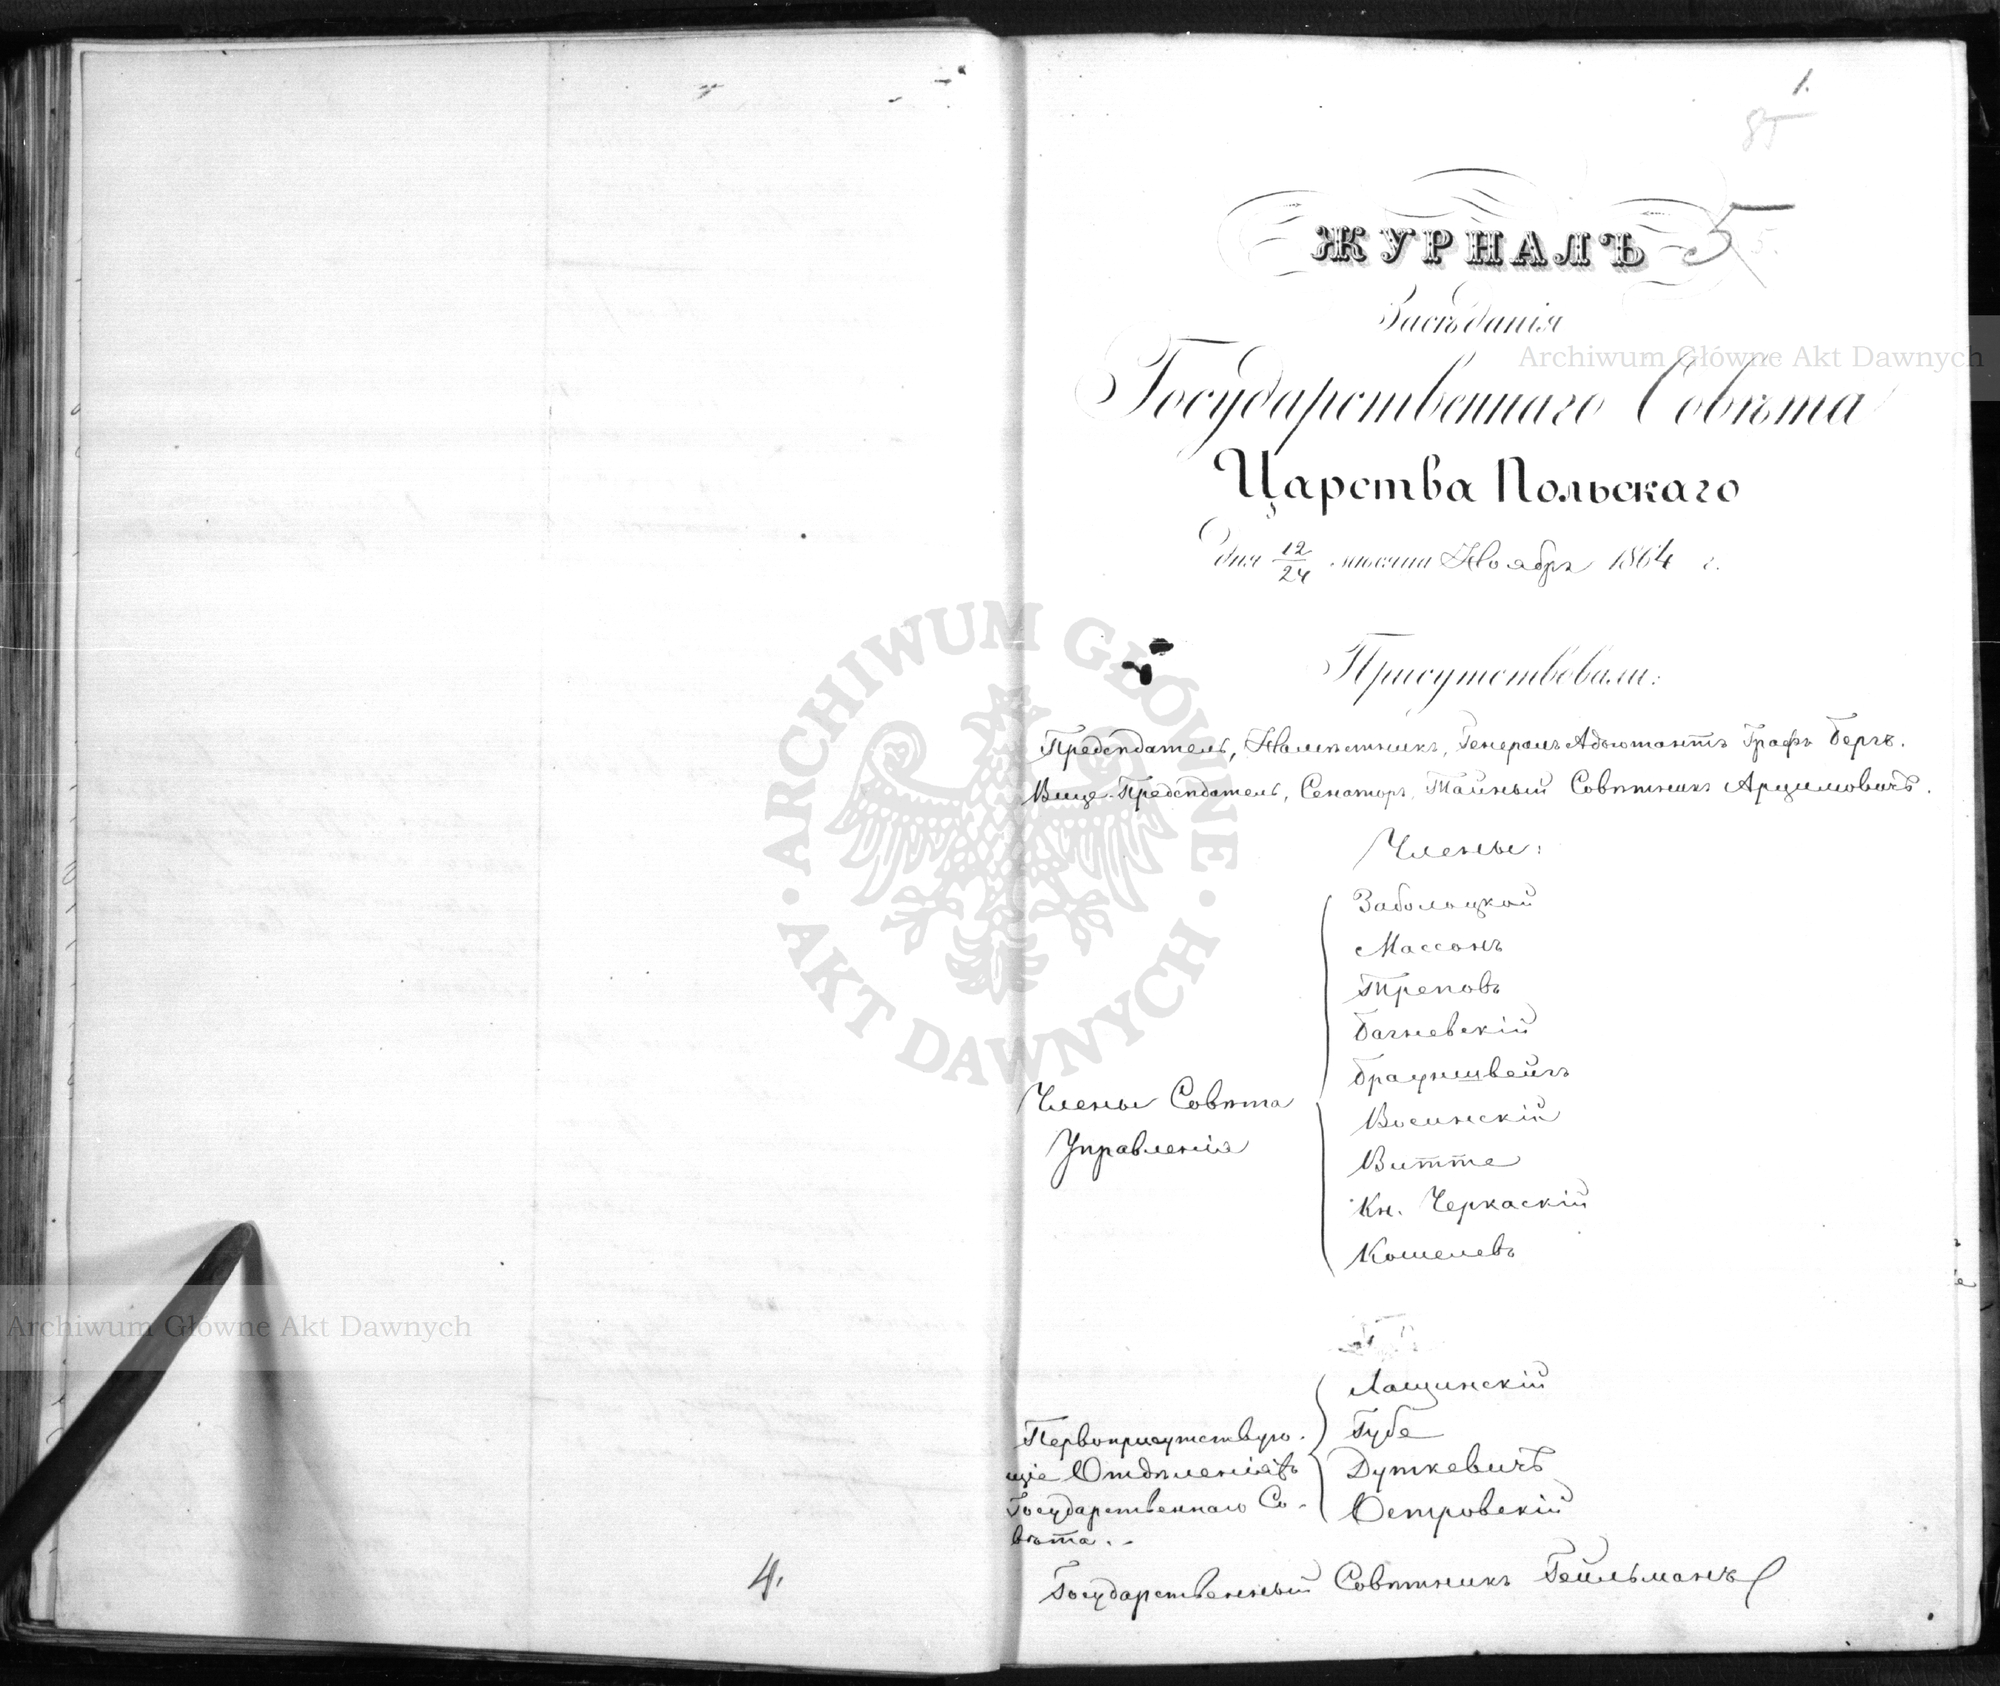 1.
85
ЖУРНАЛЪ
5
Засѣданія
Государственнаго Совѣта
Царства Польскаго
дня 12/24 мѣсяца Ноября 1864 г.
Присутствовали:
Предсѣдатель, Намѣстникъ, Генералъ Адъютантъ Графъ Бергъ.
Вице-Предсѣдатель, Сенаторъ, Тайный Совѣтникъ Арцимовичъ.
Члены:
Члены Совѣта
Управленія
Заболоцкой
Массонъ
Треповъ
Багневскій
Брауншвейгъ
Восинскій
Витте
Кн. Черкаскій
Кошелевъ
Первоприсутствую-
щіе Отдѣленіяхъ
Государственнаго Со-
вѣта.
Лащинскій
Губе
Дуткевичъ
Островскій
Государственный Совѣтникъ Гейльманъ
4.
Archiwum Główne Akt Dawnych
Archiwum Główne Akt Dawnych
ARCHIWUM GŁÓWNE AKT DAWNYCH